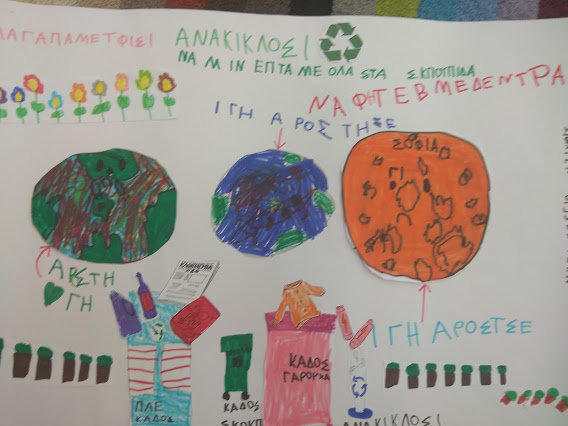 ΝΑΓΑΠΑΜΕΤΦΙΣΙ
ΑΝΑΚΙΚΛΟΣΙ
ΝΑ ΜΙΝ ΕΠΤΑΜΕ ΟΛΑ STA ΣΚΠΟΠΙΔΑ
ΝΑ ΦΗΤΕΒΜΕ ΔΕΝΤΡΑ
Ι ΓΗ ΑΡΟΣΤΗΣΕ
ΣΟΦΙΑ
ΓΙ
ΑΡΣΤΗ
ΓΗ
Ι ΓΗ ΑΡΟΣΤΣΕ
ΚΑΔΟΣ
ΓΑΡΟΥΧΑ
ΠΛΕ
ΚΑΔΟΣ
ΚΑΔΟΣ
ΣΚΟΥΠ
ΑΝΑΚΙΚΛΟΣΙ